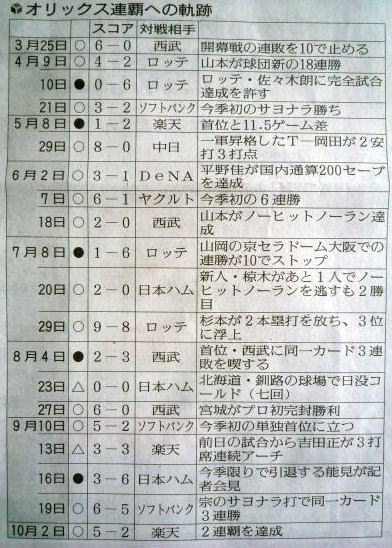 オリックス連覇への軌跡
スコア 対戦相手
3月25日 ○ 6－0 西武 開幕戦の連敗を10で止める
4月9日 ○ 4－2 ロッテ 山本が球団新の18連勝
10日 ● 0－6 ロッテ ロッテ・佐々木朗に完全試合
達成を許す
21日 ○ 3－2 ソフトバンク 今季初のサヨナラ勝ち
5月8日 ● 1－2 楽天 首位と11.5ゲーム差
29日 ○ 8－0 中日 一軍昇格したT－岡田が2安
打3打点
6月2日 ○ 3－1 DeNA 平野佳が国内通算200セーブ
を達成
7日 ○ 6－1 ヤクルト 今季初の6連勝
18日 ○ 2－0 西武 山本がノーヒットノーラン達
成
7月8日 ● 1－6 ロッテ 山岡の京セラドーム大阪での
連勝が10でストップ
20日 ○ 2－0 日本ハム 新人・椋木があと1人でノー
ヒットノーランを逃すも2勝
目
29日 ○ 9－8 ロッテ 杉本が2本塁打を放ち、3位
に浮上
8月4日 ● 2－3 西武 首位・西武に同一カード3連
敗を喫する
23日 △ 0－0 日本ハム 北海道・釧路の球場で日没コ
ールド（七回）
27日 ○ 6－0 西武 宮城がプロ初完封勝利
9月10日 ○ 5－2 ソフトバンク 今季初の単独首位に立つ
13日 △ 3－3 楽天 前日の試合から吉田正が3打
席連続アーチ
16日 ● 3－6 日本ハム 今季限りで引退する能見が記
者会見
19日 ○ 6－5 ソフトバンク 宗のサヨナラ打で同一カード
3連勝
10月2日 ○ 5－2 楽天 2連覇を達成